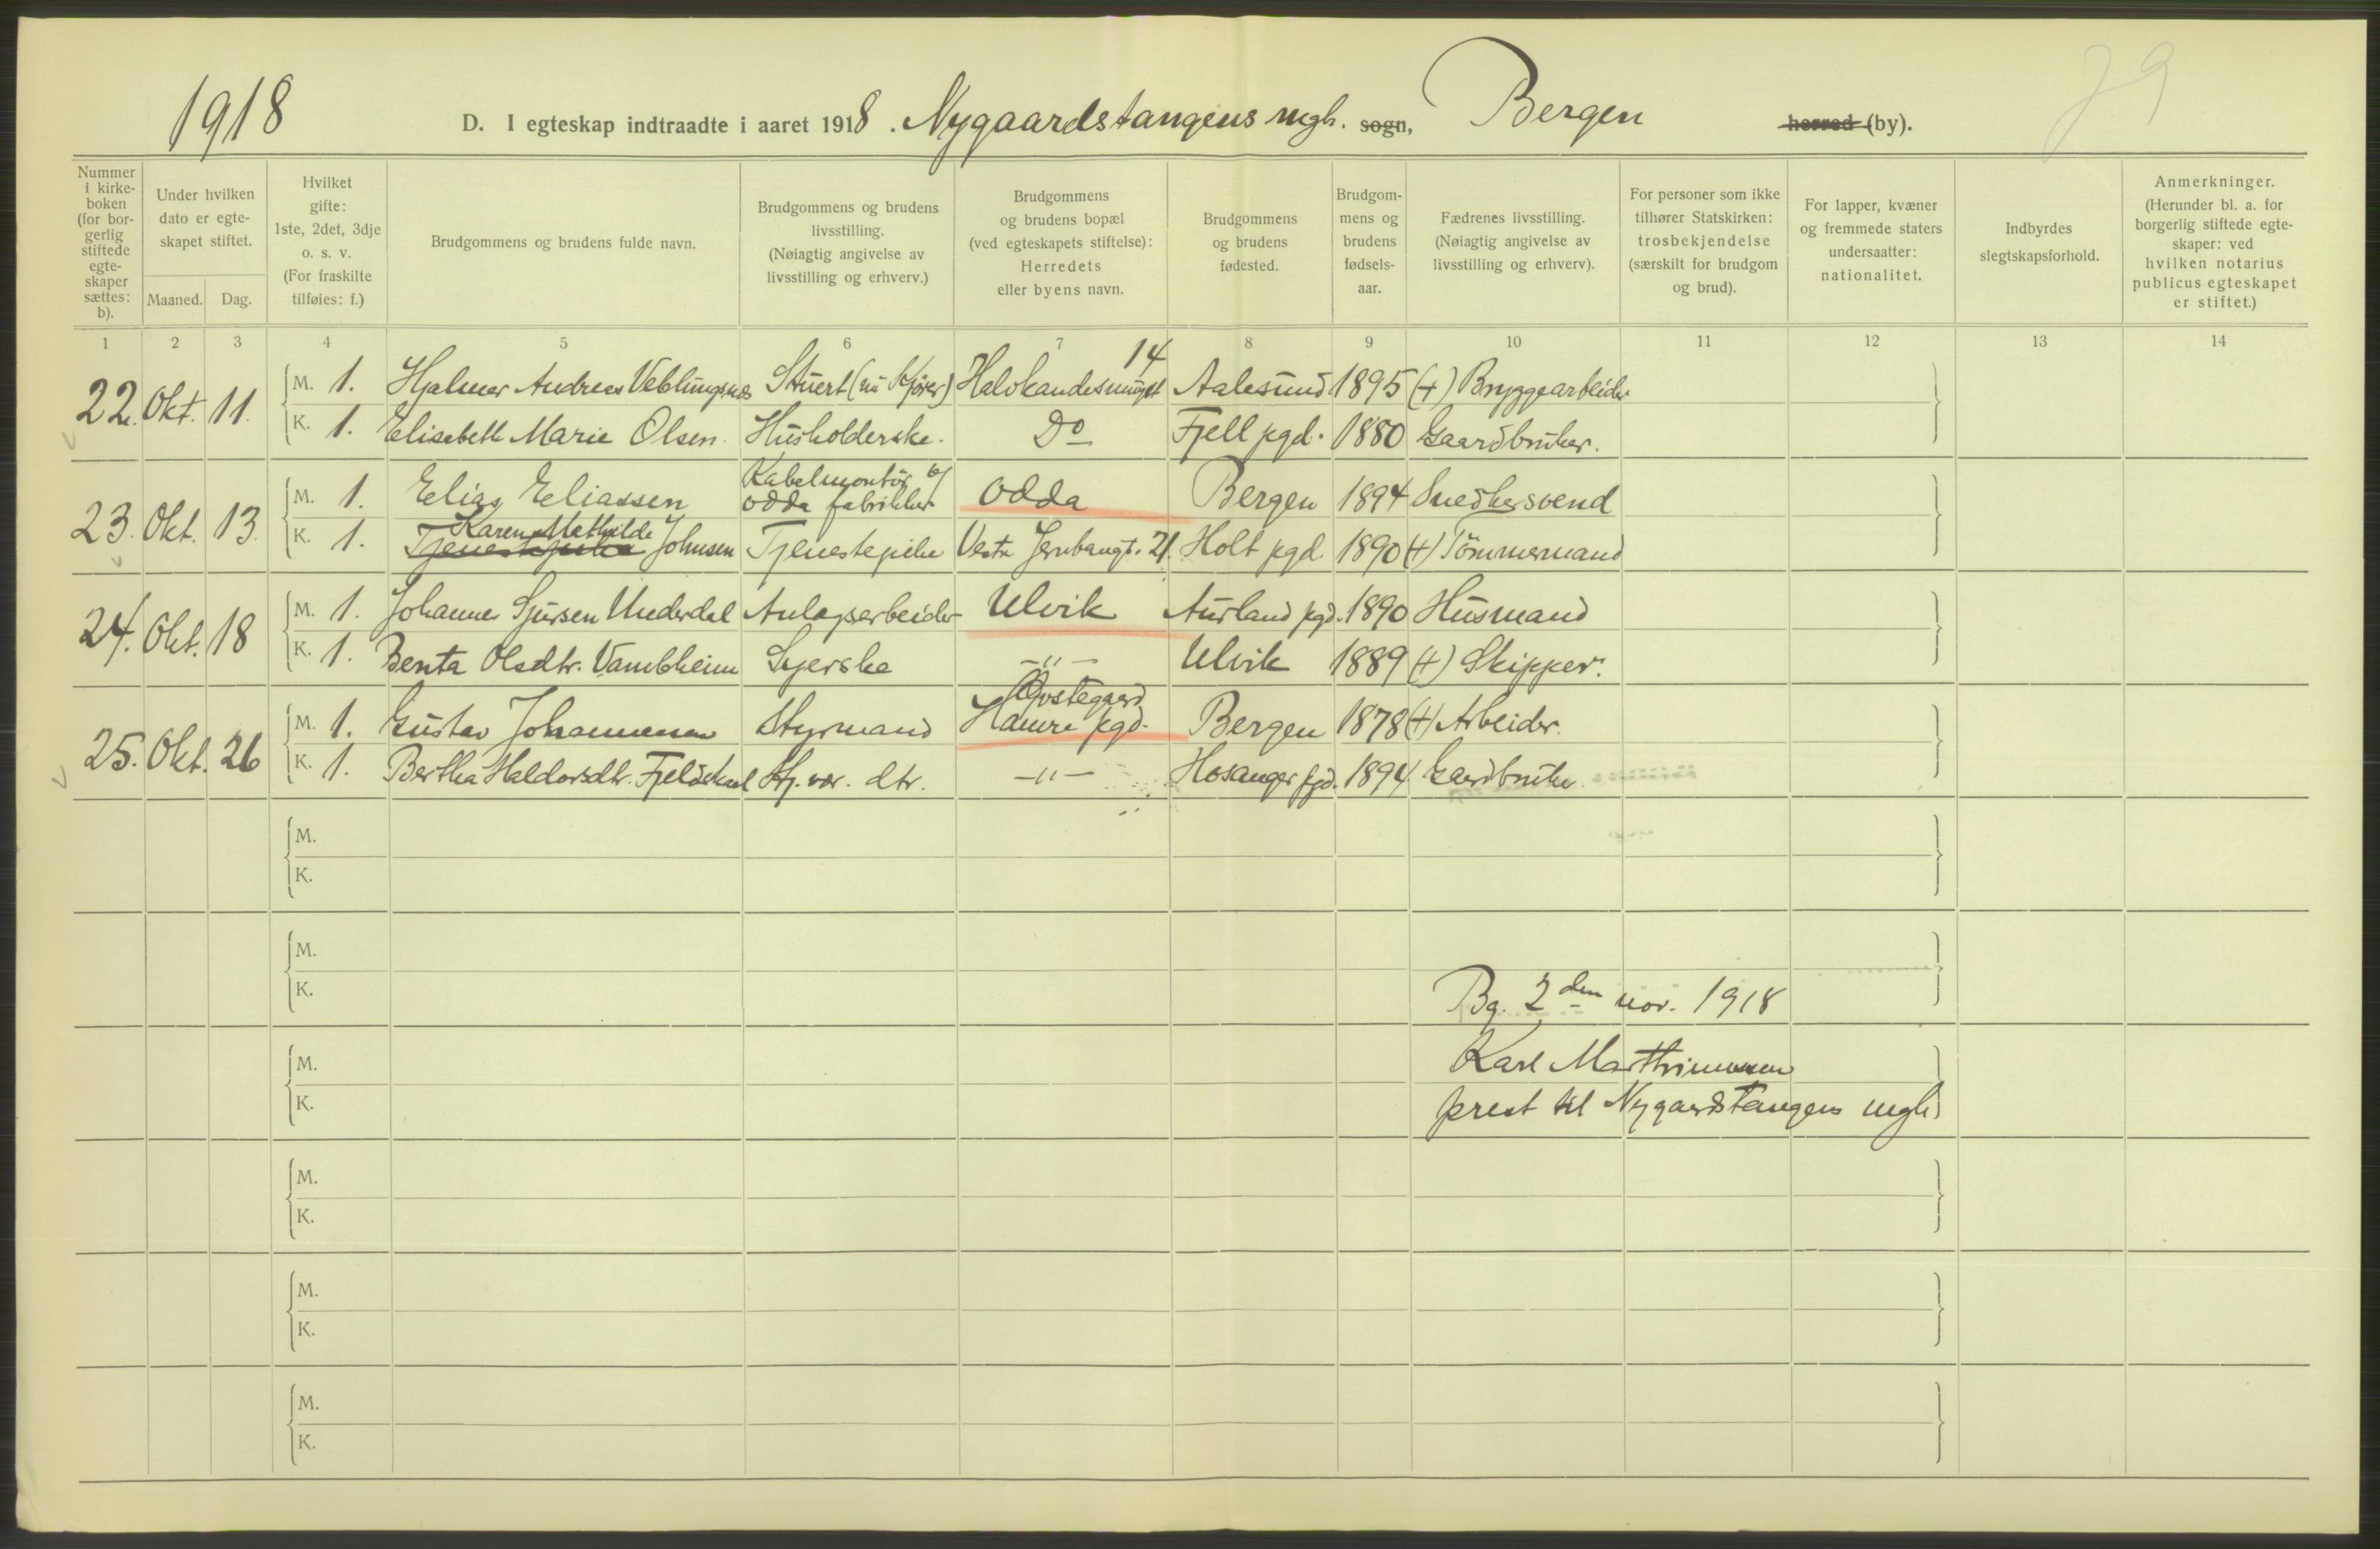 1918 D. I egteskap indtraadte i aaret 1918. Nygaardstangens mgh. sogn, Bergen herred (by). 79
Nummer i kirke-boken (for bor-gerlig stiftede egte-skaper sættes: b).
Under hvilken dato er egte-skapet stiftet.
Maaned. Dag.
Hvilket gifte: 1ste, 2det, 3dje o. s. v. (For fraskilte tilføies: f.)
Brudgommens og brudens fulde navn.
Brudgommens og brudens livsstilling. (Nøiagtig angivelse av livsstilling og erhverv.)
Brudgommens og brudens bopæl (ved egteskapets stiftelse): Herredets eller byens navn.
Brudgommens og brudens fødested.
Brudgom-mens og brudens fødsels-aar.
Fædrenes livsstilling. (Nøiagtig angivelse av livsstilling og erhverv).
For personer som ikke tilhører Statskirken: trosbekjendelse (særskilt for brudgom og brud).
For lapper, kvæner og fremmede staters undersaatter: nationalitet.
Indbyrdes slegtskapsforhold.
Anmerkninger. (Herunder bl. a. for borgerlig stiftede egte-skaper: ved hvilken notarius publicus egteskapet er stiftet.)
1 2 3 4 5 6 7 8 9 10 11 12 13 14
22. Okt. 11. M. 1. Hjalmar Andreas Veblungsnes Stuert (nu Kjører) 14 Aalesund 1895 (+) Bryggearbeider
K. 1. Elisabeth Marie Olsen. Husholderske. Do Fjell pgd. 1880 Gaardbruker.
23. Okt. 13. M. 1. Elias Eliassen Kabelmontör v/ Odda fabrikker Odda Bergen 1894 Snedkersvend
K. 1. Karen Mathilde Tjenestepike Johnsen Tjenestepike Vestr Jernbangt. 21. Holt pgd. 1890 (+) Tömmermand
24. Okt. 18 M. 1. Johannes Sjursen Underdal Anlægsarbeider Ulvik Aurland pgd. 1890 Husmand
K. 1. Benta Olsdtr. Vambheim Syerske -"- Ulvik 1889 (+) Skipper.
25. Okt. 26 M. 1. Gustav Johannessen Styrmand Hamre pgd. Bergen 1878 (+) Arbeider.
K. 1. Bertha Haldorsdtr. Fjeldskaal Hj. vær. dtr. -"- Hosanger pgd. 1894 Gaardbruker
M.
K.
M.
K.
Bg. 2den nov. 1918
M.
Karl Marthinussen
K.
prest til Nygaardstangens mgh.
M.
K.
M.
K.
M.
K.